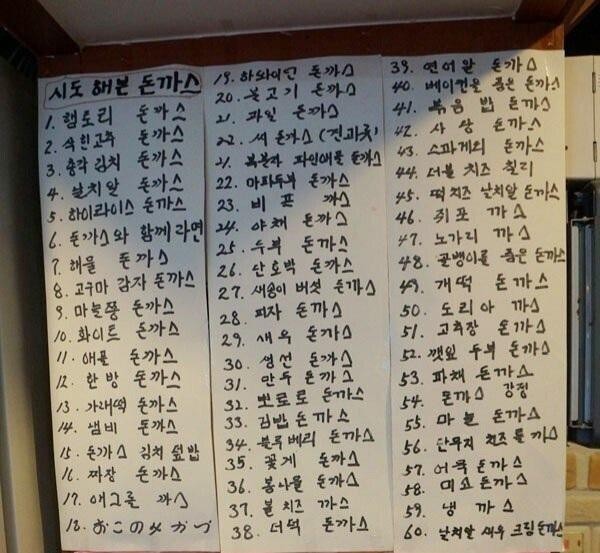 시도 해본 돈까스
1. 햄토리 돈까스
2. 삭힌고추 돈까스
3. 총각김치 돈까스
4. 날치알 돈까스
5. 하이라이스 돈까스
6. 돈가스와 함께라면
7. 해물 돈까스
8. 고구마 감자 돈까스
9. 마늘쫑 돈까스
10. 화이트 돈까스
11. 애플 돈까스
12. 한방 돈까스
13. 가래떡 돈까스
14. 샘비 돈까스
15. 돈까스 김치 덮밥
16. 짜장 돈까스
17. 에그롤 까스
18. おこのみかつ
19. 하와이안 돈까스
20. 불고기 돈까스
21. 과일 돈까스
22. 씨 돈까스 (견과류)
21. 복분자 파인애플 돈까스
22. 마파두부 돈까스
23. 비프 까스
24. 야채 돈까스
25. 두부 돈까스
26. 단호박 돈까스
27. 새송이 버섯 돈까스
28. 피자 돈까스
29. 새우 돈까스
30. 생선 돈까스
31. 만두 돈까스
32. 뽀로로 돈까스
33. 김밥 돈까스
34. 블루베리 돈까스
35. 꽃게 돈까스
36. 콩나물 돈까스
37. 볼 치즈 까스
38. 더덕 돈까스
39. 연어알 돈까스
40. 베이컨을 품은 돈까스
41. 볶음밥 돈까스
42. 사상 돈까스
43. 스파게리 돈까스
44. 더블 치즈 칠리
45. 떡치즈 날치알 돈까스
46. 쥐포 까스
47. 노가리 까스
48. 골뱅이를 품은 돈까스
49. 개떡 돈까스
50. 도리아 까스
51. 고추장 돈까스
52. 깻잎 두부 돈까스
53. 파채 돈까스
54. 돈까스 강정
55. 마늘 돈까스
56. 단무지 치즈롤까스
57. 어묵 돈까스
58. 미소 돈까스
59. 냉 까스
60. 날치알 새우 크림 돈까스